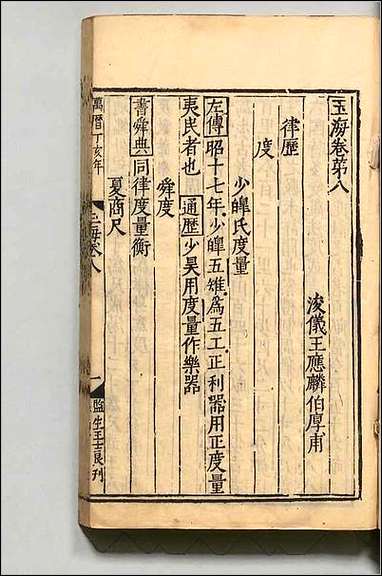 玉海卷第八
浚儀王應麟伯厚甫
律歷
度
少皥氏度量
左傳昭十七年少皥五雉爲五工正利器用正度量
夷民者也通歷少昊用度量作樂器
舜度
書舜典同律度量衡
夏商尺
萬曆丁亥年
玉海卷八
一
監生王士良刋